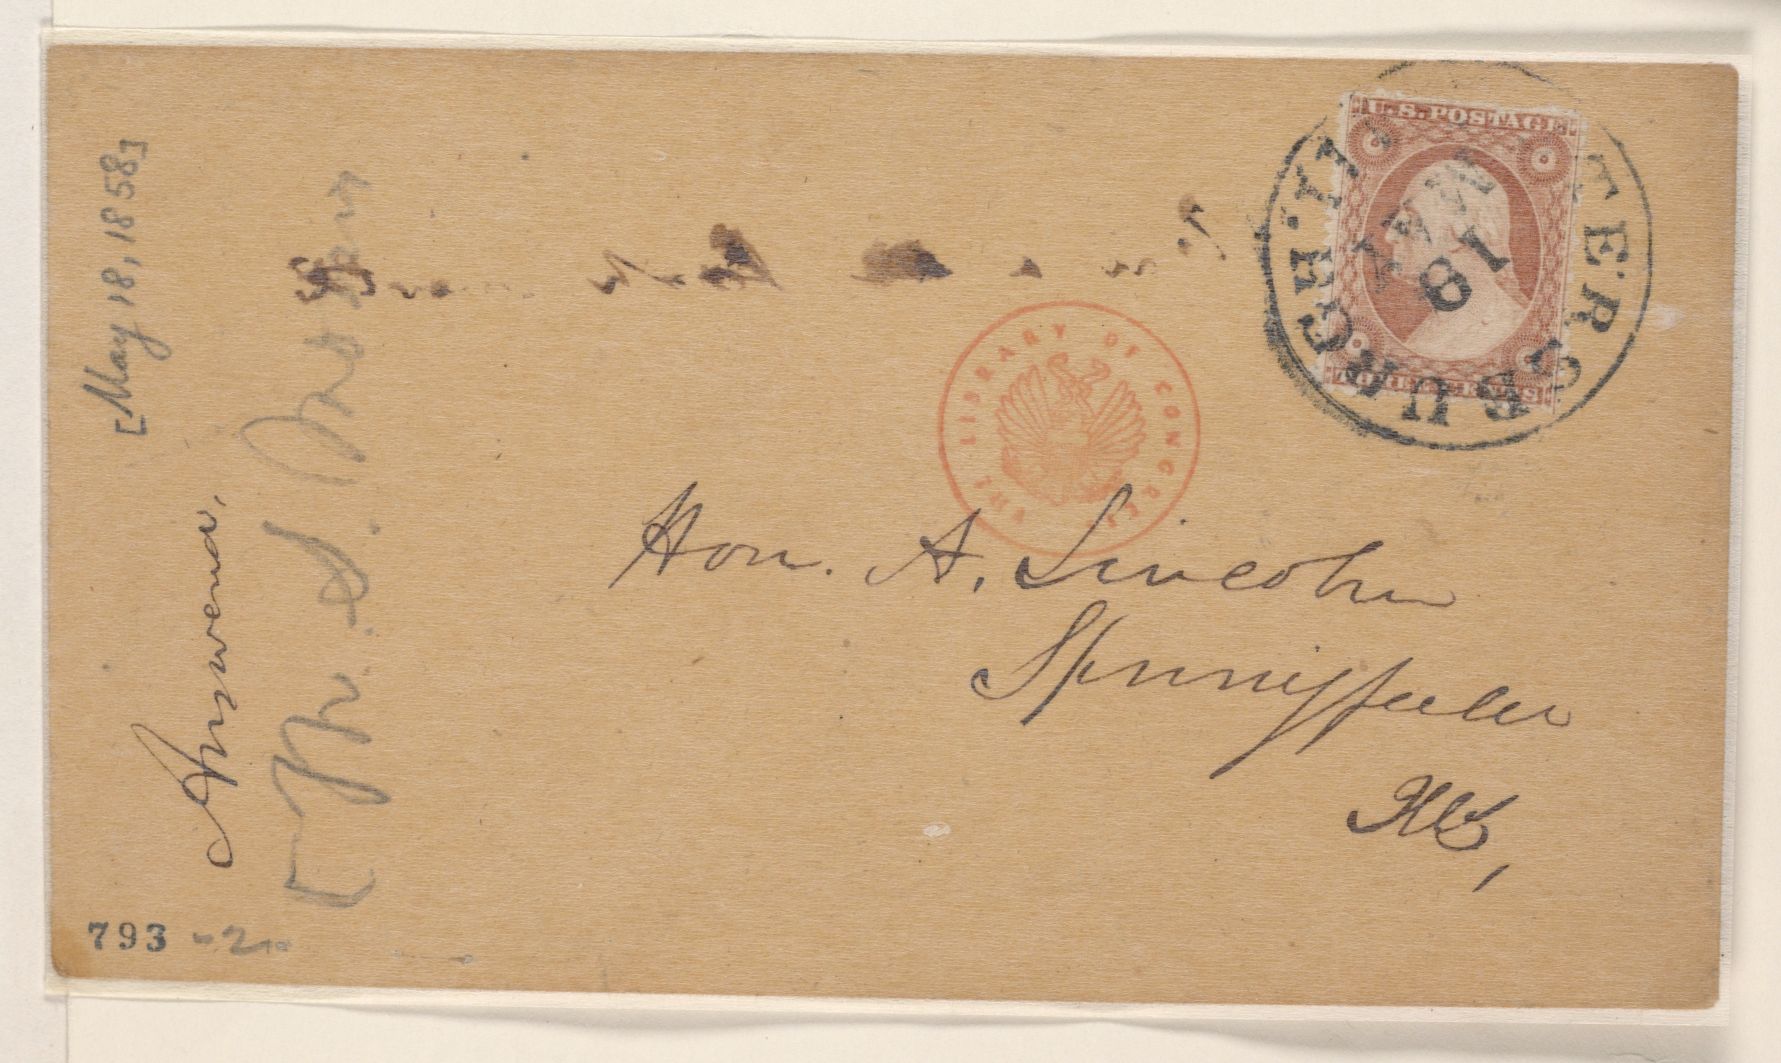 [May 18, 1858]
Answered,
U.S. POSTAGE
THREE CENTS
TERSBURGH. ILL.
MAY
18
THE LIBRARY OF CONGRESS
Hon. A. Lincoln
Springfield
Ills,
793